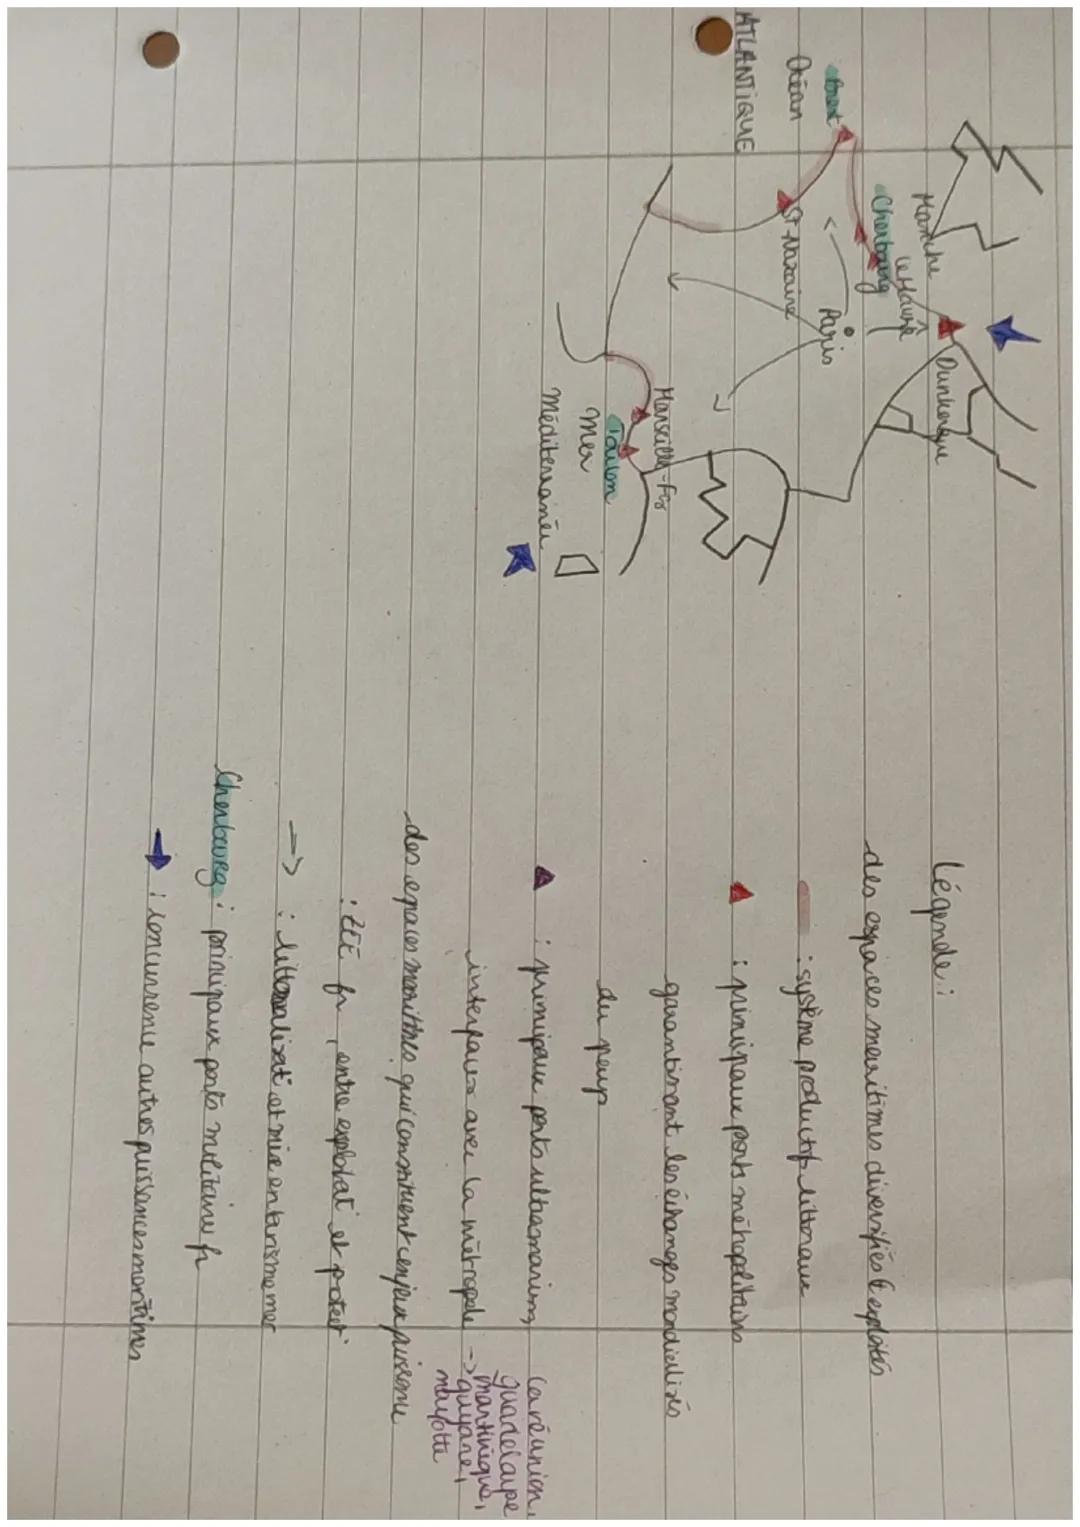 Manche
Dunkerque
Le Havre
Cherbourg
Brest
Océan
ATLANTIQUE
Paris
St Nazaire
Marseille-Fos
Toulon
Mer
Méditerranée
Légende :
des espaces maritimes diversifiés & exploités
: système productifs littoraux
: principaux ports métropolitains
garantissant les échanges mondialisés
du pays
: principaux ports ultramarins,
interfaces avec la métropole ->
La réunion,
guadeloupe
martinique,
guyane,
mayotte
des espaces maritimes qui constituent enjeux puissance
: ZEE fr, entre exploitat° et protect°
-> : littoralisat° et mise en tourisme mer
Cherbourg : principaux ports militaires fr
: concurrence autres puissances maritimes